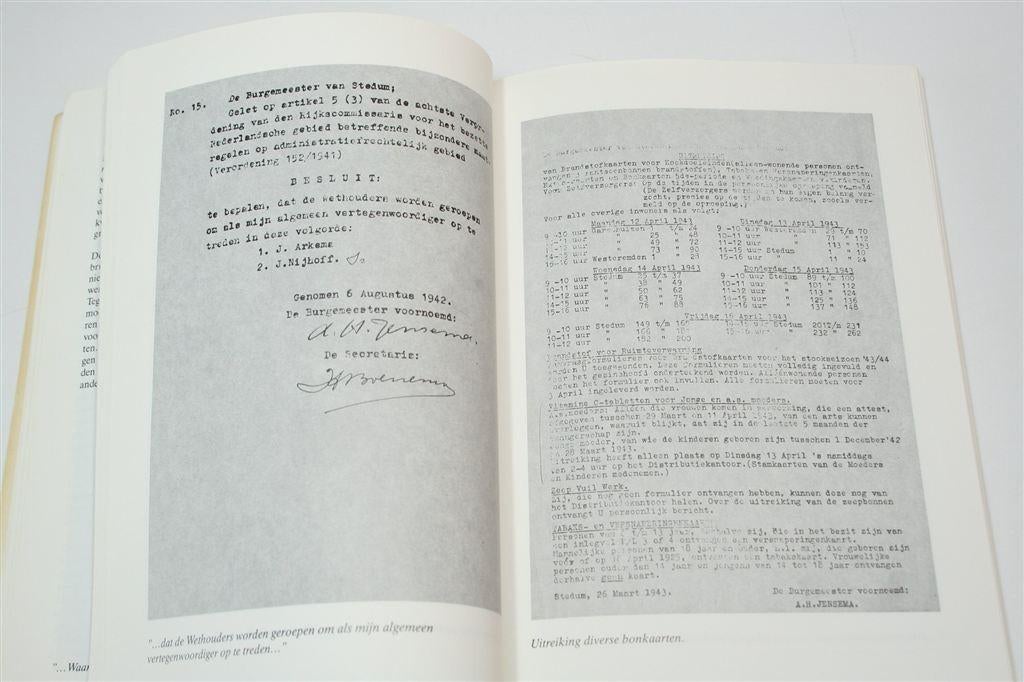 No. 15. De Burgemeester van Stedum;
Gelet op artikel 5 (3) van de achtste Veror-
dening van den Rijkscommissaris voor het bezette
Nederlandsche gebied betreffende bijzondere maat-
regelen op administratiefrechtelijk gebied
(Verordening 152/1941)
BESLUIT:
te bepalen, dat de wethouders worden geroepen
om als mijn algemeen vertegenwoordiger op te
treden in deze volgorde:
1. J. Arkema
2. J.Nijhoff.
Genomen 6 Augustus 1942.
De Burgemeester voornoemd:
De Secretaris:
"...dat de Wethouders worden geroepen om als mijn algemeen
vertegenwoordiger op te treden..."
"... Waar
De Burgemeester van
van Brandstofkaarten voor Kookdoeleinden(alleen-wonende personen ont-
Voor Zelfverzorgers: Op de tijden in de persoonlijke oproeping vermeld
(De Zelfverzorgers worden in hun eigen belang ver-
zocht, precies op de tijden te komen, zooals ver-
meld op de oproeping.)
Voor alle overige inwoners als volgt:
Maandag 12 April 1943 Dinsdag 13 April 1943
9 -10 uur 1 t/m 24 9 -10 uur Westeremden 29 t/m 70
10-11 uur " 25 " 48 10-11 uur " 71 " 112
49 " 72 11-12 uur " 113 " 153
73 " 90 14-15 uur Stedum 1 " 10
15-16 uur Westeremden 1 " 28 15-16 uur " 11 " 24
Woensdag 14 April 1943 Donderdag 15 April 1943
9 -10 uur Stedum 25 t/m 37 9 -10 uur Stedum 89 t/m 100
10-11 uur " 38 " 49 10-11 uur " 101 " 112
11-12 uur " 50 " 62 11-12 uur " 113 " 124
14-15 uur " 63 " 75 14-15 uur " 125 " 136
15-16 uur " 76 " 88 15-16 uur " 137 " 148
Vrijdag 16 April 1943
9 -10 uur Stedum 149 t/m 165 14-15 uur Stedum 201t/m 231
10-11 uur " 166 " 15-16 uur " 232 " 262
11-12 uur " 182 " 200
Brandstof voor Ruimteverwarming
Aanvraagformulieren voor Brandstofkaarten voor het stookseizoen '43/44
worden U toegezonden. Deze formulieren moeten volledig ingevuld en
door het gezinshoofd onderteekend worden. Alleenwonende personen
moeten het formulier ook invullen. Alle formulieren moeten voor
3 April ingeleverd worden.
Vitamine C-tabletten voor Jonge en a.s. moeders.
A.s.moeders: Alleen die vrouwen komen in aanmerking, die een attest,
afgegeven tusschen 29 Maart en 11 April 1943, van een arts kunnen
overleggen, waaruit blijkt, dat zij in de laatste 5 maanden der
zwangerschap zijn.
Jonge moeder, van wie de kinderen geboren zijn tusschen 1 December'42
en 28 Maart 1943.
Uitreiking heeft alleen plaats op Dinsdag 13 April 's namiddags
van 2-4 uur op het Distributiekantoor.(Stamkaarten van de Moeders
en Kinderen medenemen.)
Zeep Vuil Werk.
Zij, die nog geen formulier ontvangen hebben, kunnen deze nog van
het Distributiekantoor halen. Over de uitreiking van de zeepbonnen
ontvangt U persoonlijk bericht.
TABAKS- en VERSNAPERINGENKAARTEN
Personen van 4 t/m 13 jaar, behalve zij, die in het bezit zijn van
een inlegvel 3 of 4 ontvangen een versnaperingenkaart.
Mannelijke personen van 18 jaar en ouder, n.l. zij, die geboren zijn
vóór of op April 1925, ontvangen een tabakskaart. Vrouwelijke
personen ouder dan 14 jaar en jongens van 14 tot 18 jaar ontvangen
derhalve geen kaart.
Stedum, 26 Maart 1943. De Burgemeester voornoemd:
A.H.JENSEMA.
Uitreiking diverse bonkaarten.